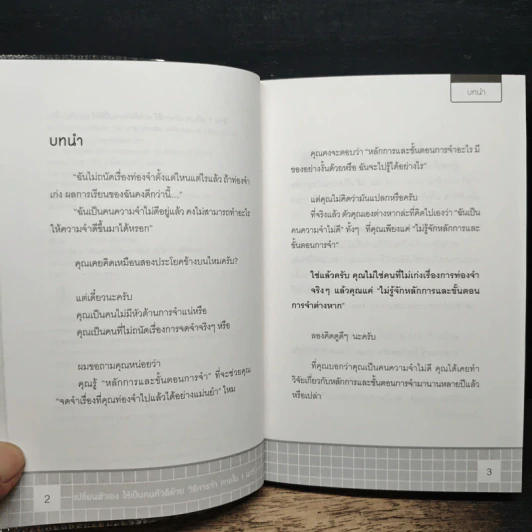 บทนำ
"ฉันไม่ถนัดเรื่องท่องจำตั้งแต่ไหนแต่ไรแล้ว ถ้าท่องจำ
เก่ง ผลการเรียนของฉันคงดีกว่านี้..."
"ฉันเป็นคนความจำไม่ดีอยู่แล้ว คงไม่สามารถทำอะไร
ให้ความจำดีขึ้นมาได้หรอก"
คุณเคยคิดเหมือนสองประโยคข้างบนไหมครับ?
แต่เดี๋ยวนะครับ
คุณเป็นคนไม่มีหัวด้านการจำแน่หรือ
คุณเป็นคนที่ไม่ถนัดเรื่องการจดจำจริงๆ หรือ
ผมขอถามคุณหน่อยว่า
คุณรู้ "หลักการและขั้นตอนการจำ" ที่จะช่วยคุณ
"จดจำเรื่องที่คุณท่องจำไปแล้วได้อย่างแม่นยำ" ไหม
2 เปลี่ยนตัวเอง ให้เป็นคนหัวดีด้วย วิธีการจำ ภายใน 1
บทนำ
คุณคงจะตอบว่า "หลักการและขั้นตอนการจำอะไร มี
ของอย่างงั้นด้วยหรือ ฉันจะไปรู้ได้อย่างไร"
แต่คุณไม่คิดว่ามันแปลกหรือครับ
ที่จริงแล้ว ตัวคุณเองต่างหากล่ะที่คิดไปเองว่า "ฉันเป็น
คนความจำไม่ดี" ทั้งๆ ที่คุณเพียงแค่ "ไม่รู้จักหลักการและ
ขั้นตอนการจำ"
ใช่แล้วครับ คุณไม่ใช่คนที่ไม่เก่งเรื่องการท่องจำ
จริงๆ แล้วคุณแค่ "ไม่รู้จักหลักการและขั้นตอน
การจำต่างหาก"
ลองคิดดูดีๆ นะครับ
ที่คุณบอกว่าคุณเป็นคนความจำไม่ดี คุณได้เคยทำ
วิจัยเกี่ยวกับหลักการและขั้นตอนการจำมานานหลายปีแล้ว
หรือเปล่า
3